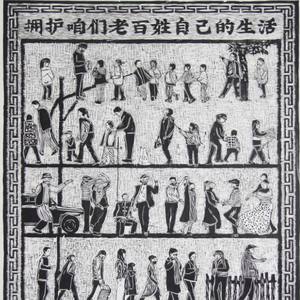 拥护咱们老百姓自己的生活